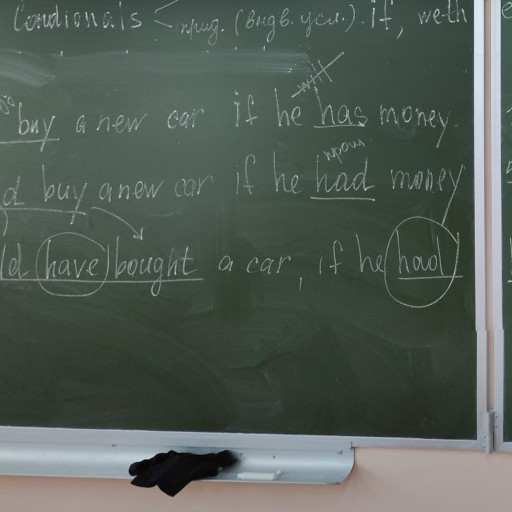 Condionals < прид. (выдв. усл.) if, weth
will
buy a new car if he has money.
прош
d buy a new car if he had money
ld have bought a car, if he had